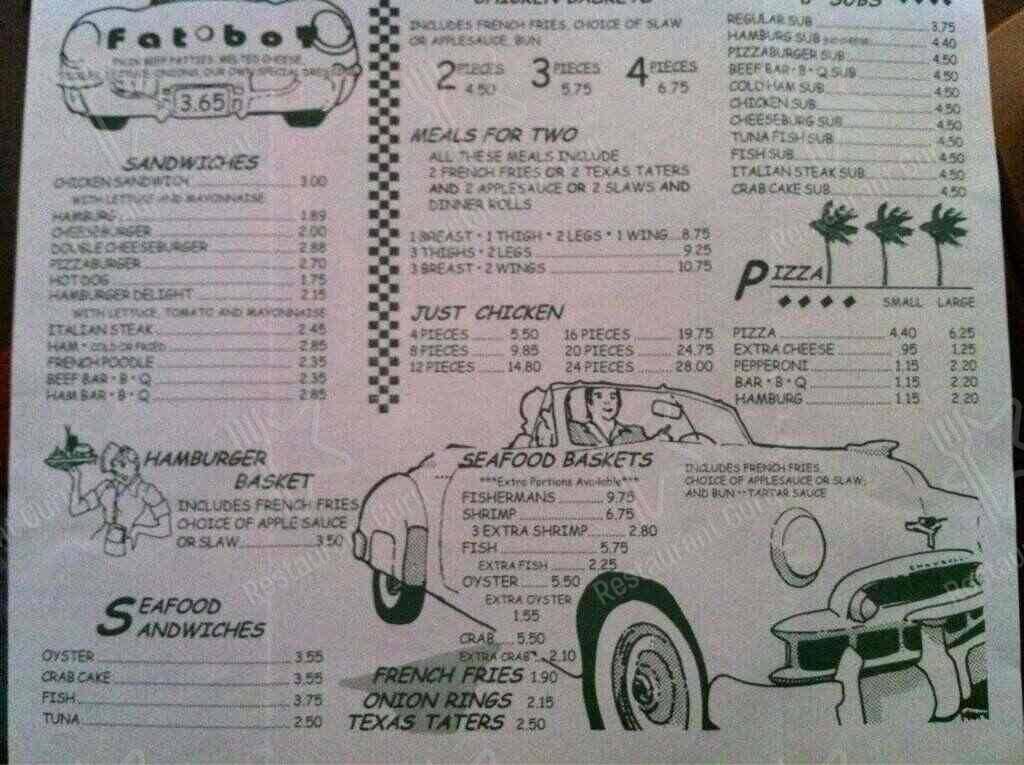 Fat boy
TWIN BEEF PATTIES, MELTED CHEESE,
LETTUCE, ONIONS, OUR OWN SPECIAL
3.65
SANDWICHES
CHICKEN SANDWICH 3.00
WITH LETTUCE AND MAYONNAISE
HAMBURG 1.89
CHEESEBURGER 2.00
DOUBLE CHEESEBURGER 2.88
PIZZABURGER 2.70
HOT DOG 1.75
HAMBURGER DELIGHT 2.15
WITH LETTUCE, TOMATO AND MAYONNAISE
ITALIAN STEAK 2.45
HAM * COLD OR FRIED 2.85
FRENCH POODLE 2.35
BEEF BAR * B * Q 2.35
HAM BAR * B * Q 2.85
HAMBURGER
BASKET
INCLUDES FRENCH FRIES
CHOICE OF APPLE SAUCE
OR SLAW 3.50
SEAFOOD
SANDWICHES
OYSTER 3.55
CRAB CAKE 3.55
FISH 3.75
TUNA 2.50
CHICKEN BASKETS
INCLUDES FRENCH FRIES, CHOICE OF SLAW
OR APPLESAUCE, BUN
2 PIECES 4.50 3 PIECES 5.75 4 PIECES 6.75
MEALS FOR TWO
ALL THESE MEALS INCLUDE
2 FRENCH FRIES OR 2 TEXAS TATERS
AND 2 APPLESAUCE OR 2 SLAWS AND
DINNER ROLLS
1 BREAST * 1 THIGH * 2 LEGS * 1 WING 8.75
3 THIGHS * 2 LEGS 9.25
3 BREAST * 2 WINGS 10.75
JUST CHICKEN
4 PIECES 5.50 16 PIECES 19.75
8 PIECES 9.85 20 PIECES 24.75
12 PIECES 14.80 24 PIECES 28.00
SEAFOOD BASKETS
***Extra Portions Available***
INCLUDES FRENCH FRIES,
CHOICE OF APPLESAUCE OR SLAW,
AND BUN ** TARTAR SAUCE
FISHERMANS 9.75
SHRIMP 6.75
3 EXTRA SHRIMP 2.80
FISH 5.75
EXTRA FISH 2.25
OYSTER 5.50
EXTRA OYSTER
1.55
CRAB 5.50
EXTRA CRAB 2.10
FRENCH FRIES 1.90
ONION RINGS 2.15
TEXAS TATERS 2.50
SUBS
REGULAR SUB 3.75
HAMBURG SUB 4.40
PIZZABURGER SUB 4.50
BEEF BAR * B * Q SUB 4.50
COLD HAM SUB 4.50
CHICKEN SUB 4.50
CHEESEBURG SUB 4.50
TUNA FISH SUB 4.50
FISH SUB 4.50
ITALIAN STEAK SUB 4.50
CRAB CAKE SUB 4.50
PIZZA
SMALL LARGE
PIZZA 4.40 6.25
EXTRA CHEESE .95 1.25
PEPPERONI 1.15 2.20
BAR * B * Q 1.15 2.20
HAMBURG 1.15 2.20